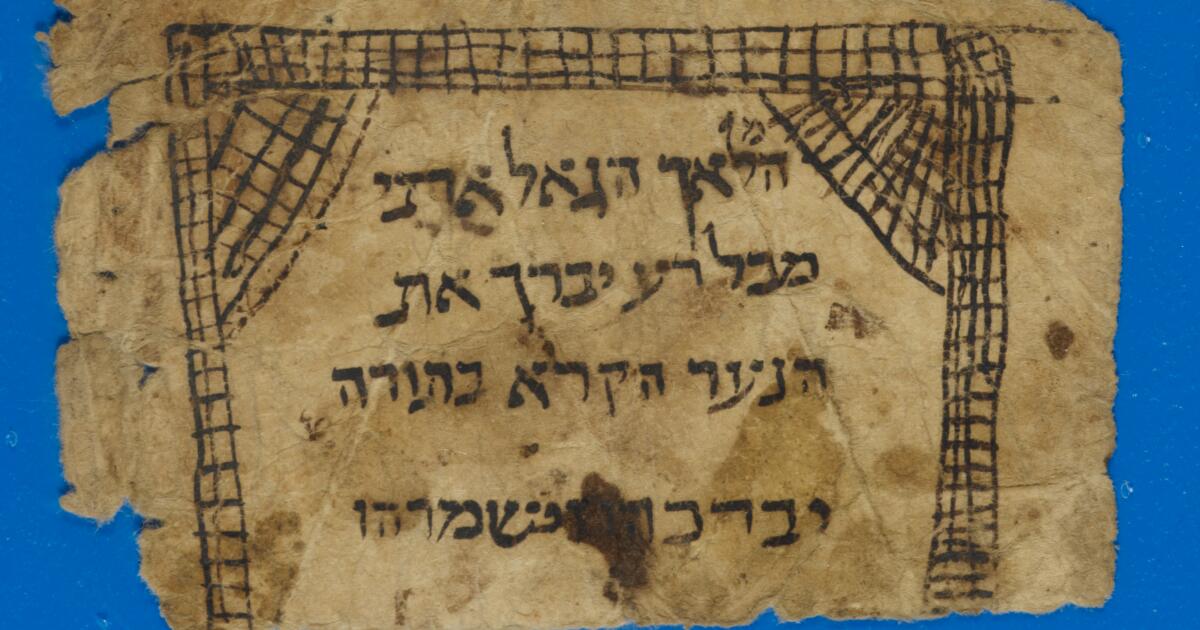 המלאך הגאל אתי
מכל רע יברך את
הנער הקרא בתורה
יברכהו וישמרהו